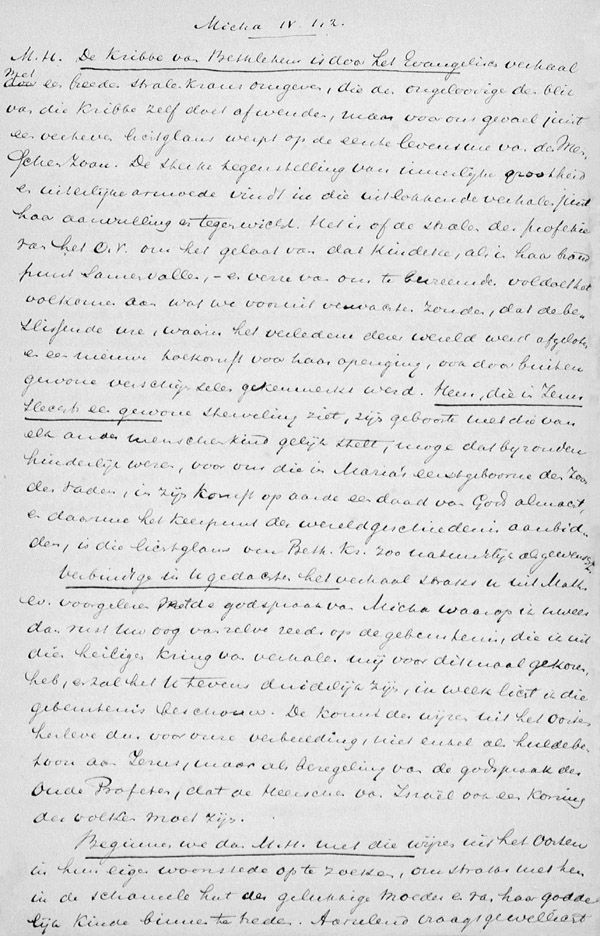 Micha IV. 1,2.
M.H. De Kribbe van Bethlehem is door het Evangelisch verhaal
met een breede stralenkrans omgeven, die den ongeloovige den blik
van die Kribbe zelf doet afwenden, maar voor ons gevoel juist
een verheven lichtglans werpt op de eerste levensure van den Men-
schen Zoon. De sterke tegenstelling van innerlijke grootheid
en uiterlijke armoede vindt in die uitlokkende verhalen juist
haar aanvulling en tegenwicht. Het is of de stralen der profetie
van het O.V. om het gelaat van dat Kindeke, als in haar brand
punt samenvallen, – en verre van ons te bevreemden voldoet het
volkomen aan wat we vooruit verwachten zouden, dat de be-
slissende ure, waarin het verleden dezer wereld werd afgesloten
en een nieuwe toekomst voor haar openging, ook door buiten
gewone verschijnselen gekenmerkt werd. Hem, die in Jezus
slechts een gewone sterveling ziet, zijn geboorte met die van
elk ander menschenkind gelijk stelt, moge dat byzondere
hinderlijk wezen, voor ons die in Maria's eerstgeboorne den Zoon
des Vaders, in zijn komst op aarde een daad van Gods almacht,
en daarmee het keerpunt der wereldgeschiedenis aanbid-
den, is die lichtglans van Beth. Kr. zoo natuurlijk als gewenscht.
Verbindt ge in uw gedachten het verhaal straks u uit Matth.
ev. voorgelezen met de godspraak van Micha waarop ik u wees
dan rust uw oog van zelve reeds op de gebeurtenis, die ik uit
dien heiligen Kring van verhalen mij voor ditmaal gekozen
heb, en zal het U tevens duidelijk zijn, in welk licht ik die
gebeurtenis beschouw. De komst der wijzen uit het Oosten
herleve dus voor onze verbeelding, niet enkel als huldebe-
toon aan Jezus, maar als bezegeling van de godspraak der
Oude Profeten, dat de Heerscher van Israël ook een koning
der volken moet zijn.
Beginnen we dan M.H. met die wijzen uit het Oosten
in hun eigen woonstede op te zoeken, om straks met hen
in de schamele hut der gelukkige moeder en van haar godde
lijk Kind binnen te treden. Aarzelend vraagt ge wellicht